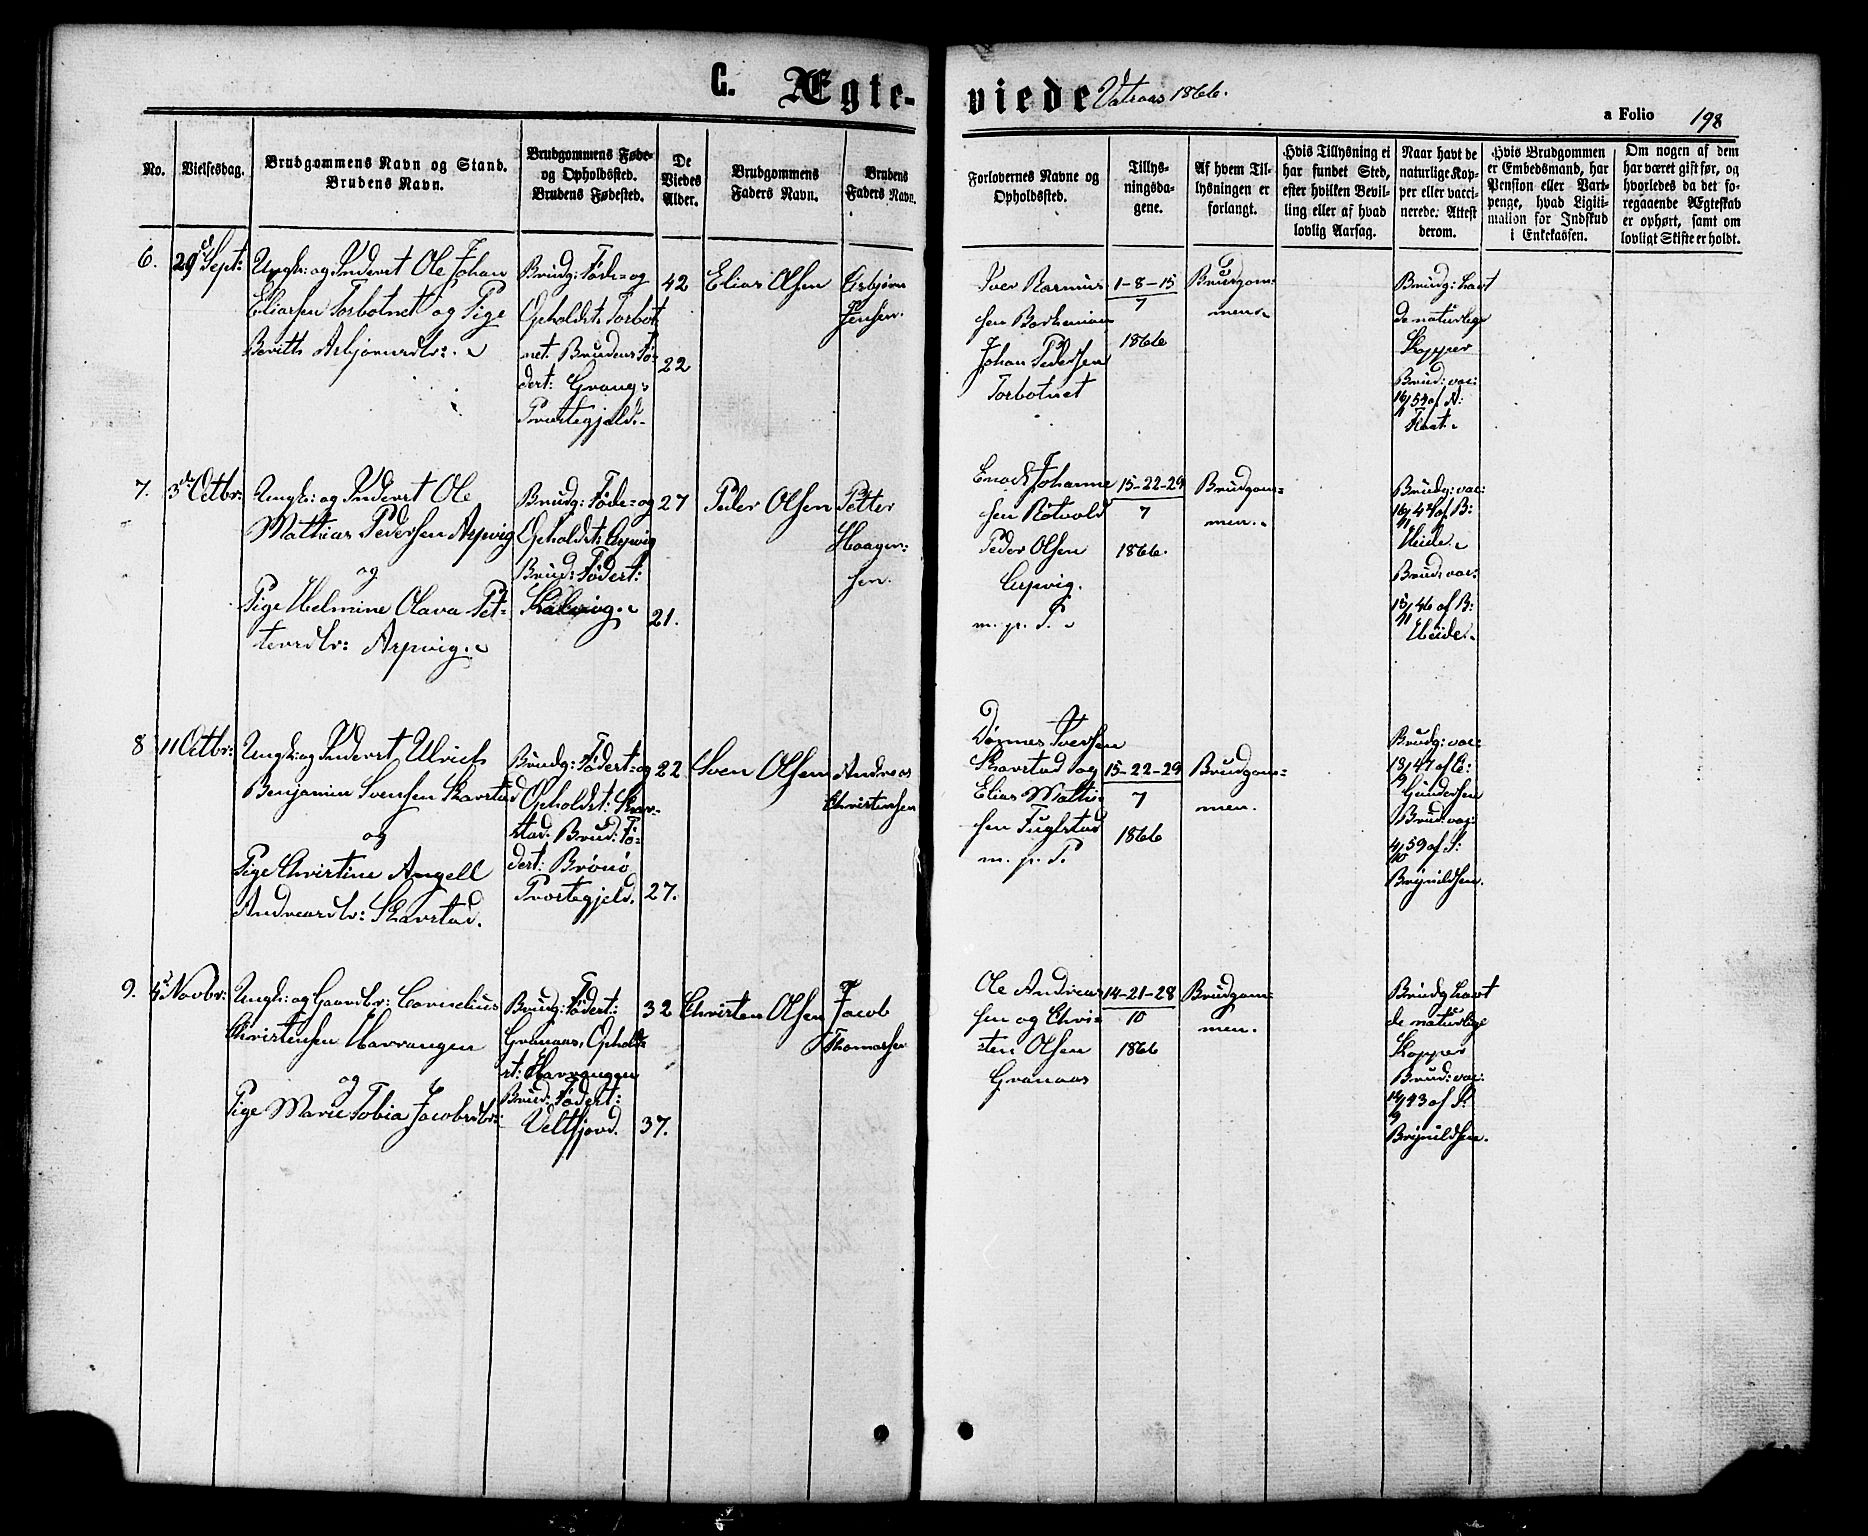 C. Ægte-
viede Vatraas 1866.
a Folio 198
No.
Vielsesdag.
Brudgommens Navn og Stand.
Brudens Navn.
Brudgommens Føde-
og Opholdsted.
Brudens Fødested.
De
Viedes
Alder.
Brudgommens
Faders Navn.
Brudens
Faders Navn.
Forlovernes Navne og
Opholdsted.
Tillys-
ningsda-
gene.
Af hvem Til-
lysningen er
forlangt.
Hvis Tillysning ei
har fundet Sted,
efter hvilken Bevil-
ling eller af hvad
lovlig Aarsag.
Naar havt de
naturlige Kop-
per eller vacci-
nerede: Attest
derom.
Hvis Brudgommen
er Embedsmand, har
Pension eller Vart-
penge, hvad Ligiti-
mation for Indskud
i Enkekassen.
Om nogen af dem
har været gift før, og
hvorledes da det fo-
regaaende Ægteskab
er ophørt, samt om
lovligt Skifte er holdt.
6.
29de Sept:
Ungk: og Inderst Ole Johan
Eliassen Torbotnet og Pige
Berith Asbjørnsdtr:
Brudg: Føde- og
Opholdst. Torbot
net. Brudens Fø-
dest: Grong
Præstegjeld.
42
22
Elias Olsen
Esbjørn
Jensen.
Iver Rasmus
sen
Johan Pedersen
Torbotnet
1-8-15
7
1866
Brudgom-
men.
Brudg: havt
de naturlige
Kopper
Brud: vac:
16/ 53 af A:
7.
3de Octbr:
Ungk: og Inderst Ole
Mathias Pedersen Aspvig
og
Pige Helmine Olava Pet-
tersdtr: Aspvig.
Brudg: Føde- og
Opholdst: Aspvig
Brud: Fødest:
27
21.
Peder Olsen
Petter
Haagen-
sen.
Enock Johanne
sen Rötvold
Peder Olsen
Aspvig.
m. p. P.
15-22-29
7
1866.
Brudgom-
men.
Brudg: vac:
16/11 47 af B:
Heide.
Brud: vac:
15/11 46 af B:
Heide.
8
11 Octbr:
Ungk: og Inderst Ulrich
Benjamin Svensen Skarstad
og
Pige Christine Angell
Andreasdtr: Skarstad.
Brudg: Fødest: og
Opholdst: Skar-
stad. Brud: Fø-
dest: Brönö
Præstegjeld.
22.
27.
Sven Olsen
Andreas
Christensen
Dønnes Iversen
Skarstad og
Elias Mathi-
sen Fuglstad
m. p. P.
15-22-29
7
1866
Brudgom-
men.
Brudg: vac:
18/9 47 af C:
Gundersen
Brud: vac:
4/10 59 af S:
Brynildsen.
9.
4de Novbr:
Ungk: og Gaardbr: Cornelius
Christensen Harrangen
og
Pige Marie Tobia Jacobsdtr:
Brudg: Fødest:
Granaas, Ophold-
st: Harrangen
Brud: Fødest:
Velfjord.
32
37.
Christen Olsen
Jacob
Thomassen
Ole Andreas
sen og Chri-
sten Olsen
Granaas
14-21-28
10
1866
Brudgom-
men.
Brudg havt
de naturlige
Kopper
Brud: vac:
14/9 43 af S:
Brynildsen.